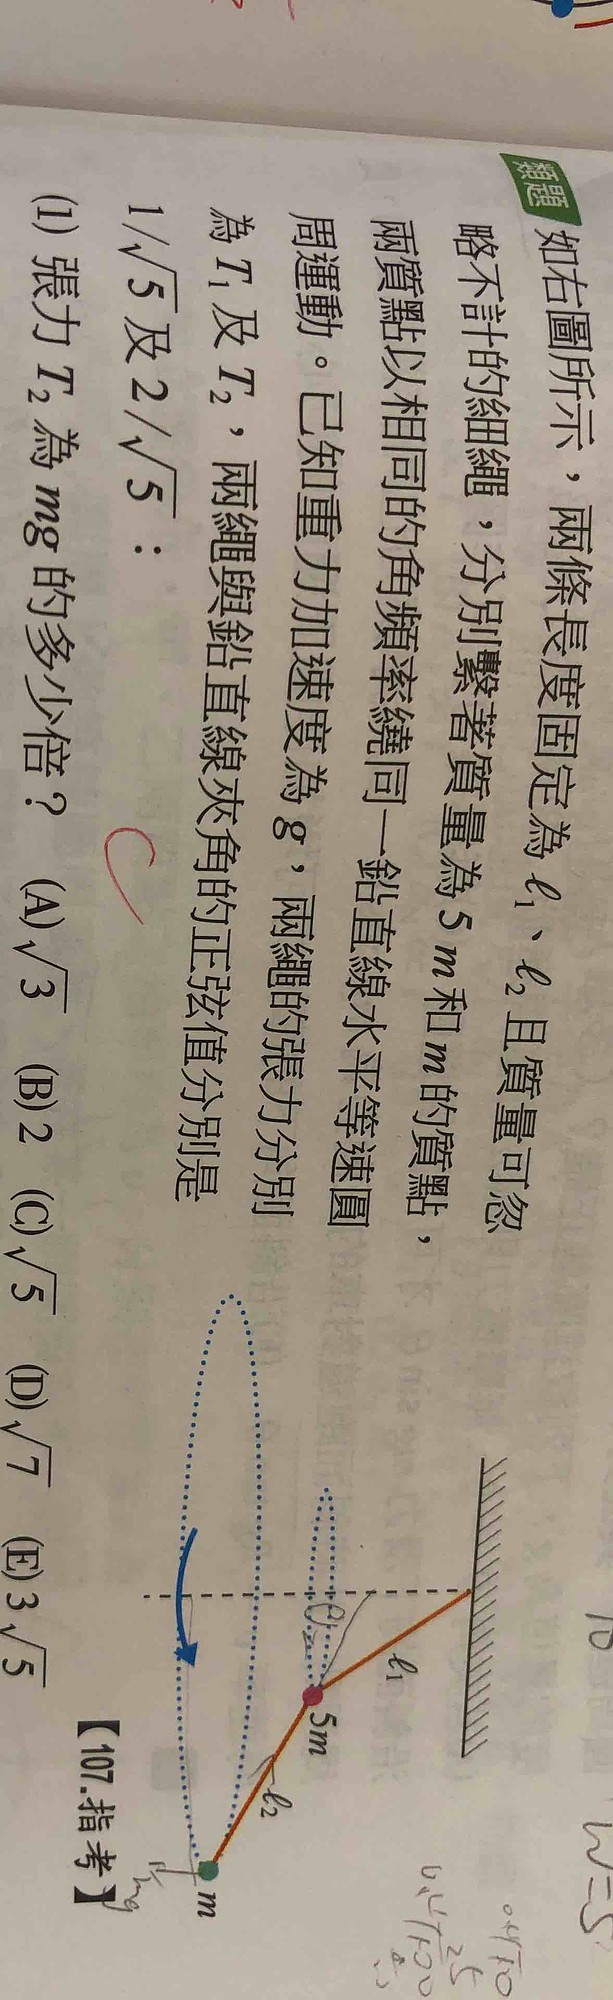 類題
如右圖所示，兩條長度固定為 ℓ₁、ℓ₂ 且質量可忽
略不計的細繩，分別繫著質量為 5 m 和 m 的質點，
兩質點以相同的角頻率繞同一鉛直線水平等速圓
周運動。已知重力加速度為 g，兩繩的張力分別
為 T₁ 及 T₂，兩繩與鉛直線夾角的正弦值分別是
1/√5 及 2/√5：
(1) 張力 T₂ 為 mg 的多少倍？ (A)√3 (B)2 (C)√5 (D)√7 (E)3√5
【107.指考】
ℓ₁
5m
ℓ₂
m
mg